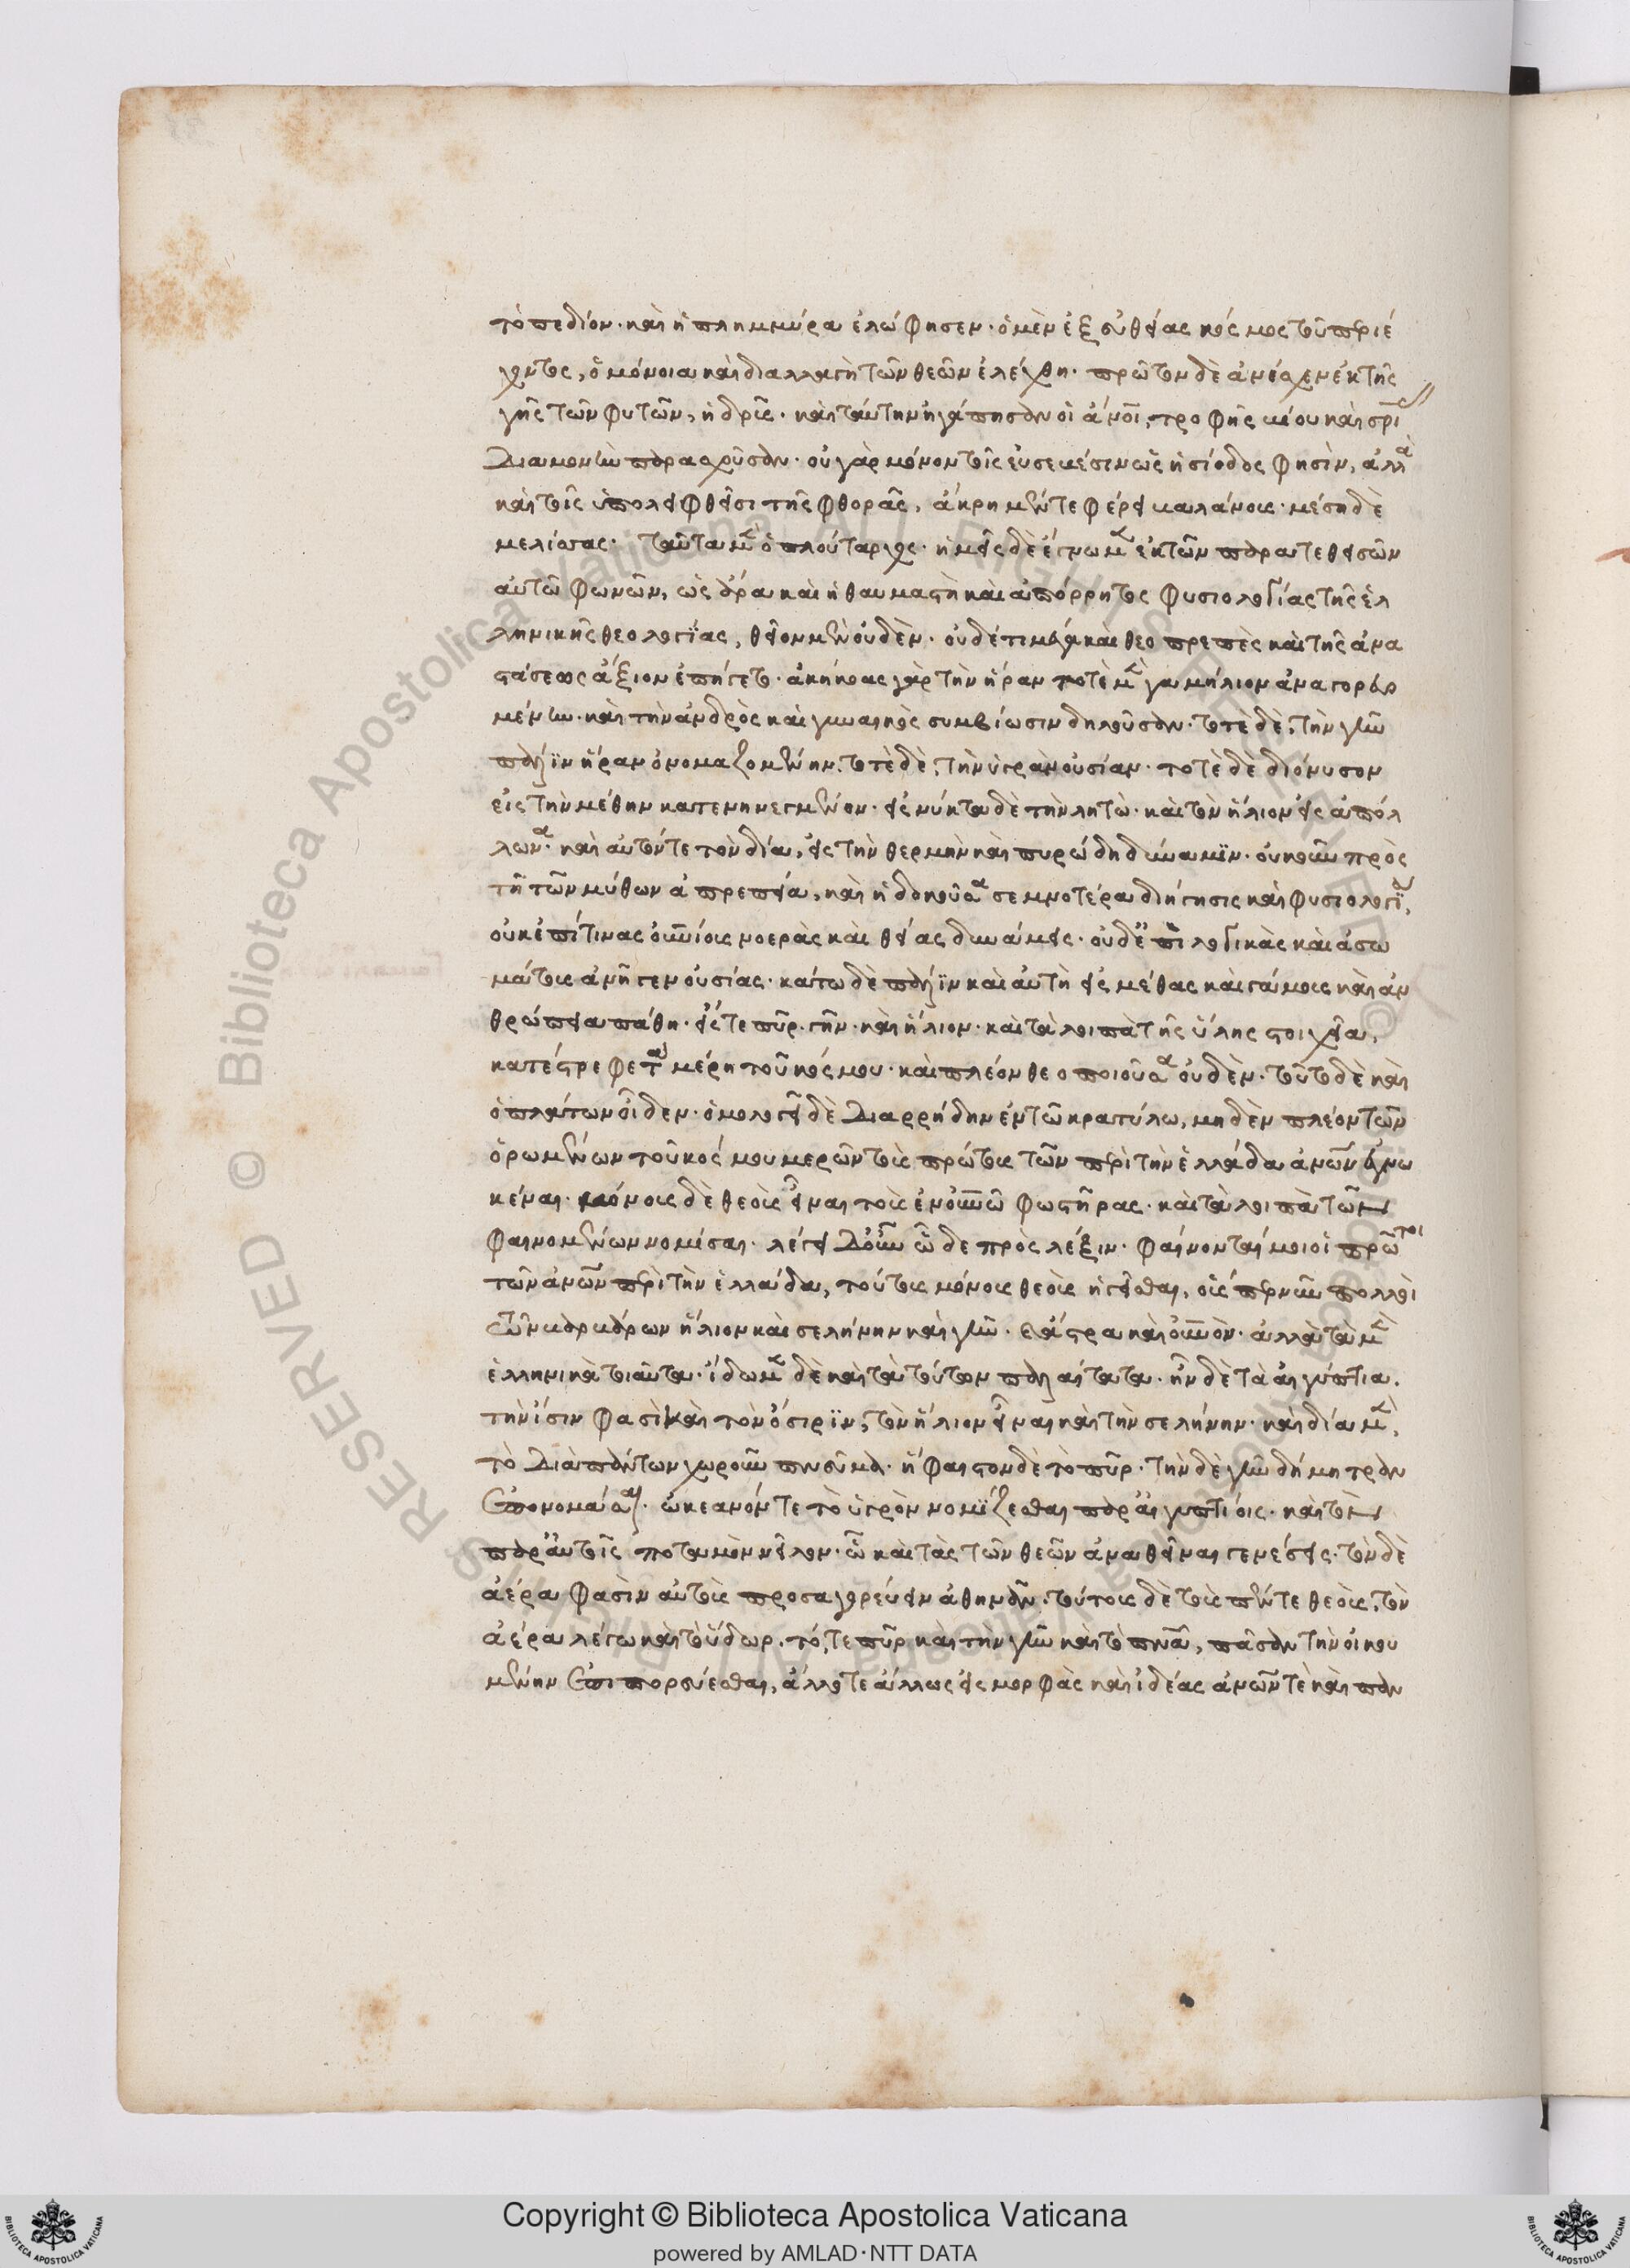 τὸ πεδίον· καὶ ἡ πλημμύρα ἐλώφησεν· ὁ μὲν ἐξ εὐθείας κόσμος τοῦ περιέ
χοντος, ὁμόνοια καὶ διαλλαγὴ τῶν θεῶν ἐλέχθη· πρῶτον δὲ ἀνέσχεν ἐκ τῆς
γῆς τῶν φυτῶν, ἡ δρῦς· καὶ ταύτην ἠγάπησαν οἱ ἄνοι, τροφῆς βίου καὶ σρι
διαμονὴν παρασχοῦσαν· οὐ γὰρ μόνον τοῖς εὐσεβέσιν ὡς ἡσίοδος φησὶν, ἀλλὰ
καὶ τοῖς ὑπολειφθεῖσι τῆς φθορᾶς, ἄκρη μέν τε φέρει βαλάνους· μέση δὲ
μελίσσας· ταῦτα μὲν ὁ πλούταρχος· ἡμεῖς δὲ ἔγνωμεν ἐκ τῶν παρατεθεισῶν
αὐτῶ φωνῶν, ὡς ἄρα καὶ ἡ θαυμαστὴ καὶ ἀπόρρητος φυσιολογίας τῆς ἑλ
ληνικῆς θεολογίας, θεῖον μὲν οὐδὲν· οὐδέ τι μέγα καὶ θεοπρεπὲς καὶ τῆς ἀνα
στάσεως ἄξιον ἐπήγετο· ἀκήκοας γὰρ τὴν ἥραν ποτὲ μὲν γαμήλιον ἀναγορευο
μένην· καὶ τὴν ἀνδρὸς καὶ γυναικὸς συμβίωσιν δηλοῦσαν· τοτὲ δὲ, τὴν γῆν
πάλιν ἥραν ὀνομαζομένην· τοτὲ δὲ, τὴν ὑγρὰν οὐσίαν· τοτὲ δὲ διόνυσον
εἰς τὴν μέθην κατενηνεγμένον· εἰς νύκτα δὲ τὴν λητὼ· καὶ τὸν ἥλιον εἰς ἀπόλ
λωνα· καὶ αὐτόν τε τὸν δία, εἰς τὴν θερμὴν καὶ πυρώδη δύναμϊν· οὐκοῦν πρὸς
τῆ τῶν μύθων ἀπρεπεία, καὶ ἡ δοκοῦσα σεμνοτέρα διήγησις καὶ φυσιολογία,
οὐκ ἐπί τινας οὐνίους νοερὰς καὶ θείας δυνάμεις· οὐδ' ἐπὶ λογικὰς καὶ ἀσω
μάτους ἀνῆγεν οὐσίας· κάτω δὲ πάλϊν καὶ αὐτὴ εἰς μέθας καὶ γάμους καὶ ἀν
θρώπεια πάθη· εἴς τε πῦρ· γῆν· καὶ ἥλιον· καὶ τὰ λοιπὰ τῆς ὕλης στοιχεῖα,
κατέστρεφε τὰ μέρη τοῦ κόσμου· καὶ πλέον θεοποιοῦσα οὐδὲν· τοῦτο δὲ καὶ
ὁ πλάτων οἶδεν· ὁμολογεῖ δὲ διαρρήδην ἐν τῶ κρατύλω, μηδὲν πλέον τῶν
ὁρωμένων τοῦ κόσμου μερῶν τοὺς πρώτους τῶν περὶ τὴν ἑλλάδα ἀνων ἐγνω
κέναι· μόνους δὲ θεοὺς εἶναι τοὺς ἐν οὐνῶ φωστῆρας· καὶ τὰ λοιπὰ τῶν
φαινομένων νομίσαι· λέγει δ' οὖν ὧδε πρὸς λέξιν· φαίνονταί μοι οἱ πρῶτοι
τῶν ἀνων περὶ τὴν ἑλλάδα, τούτους μόνους θεοὺς ἡγεῖσθαι, οὕσπερ νῦν πολλοὶ
τῶν βαρβάρων ἥλιον καὶ σελήνην καὶ γῆν· καὶ ἄστρα καὶ οὐνὸν· ἀλλὰ τὰ μὲν
ἑλληνικὰ τοιαῦτα· ἴδωμεν δὲ καὶ τὰ τούτων παλαίτατα· ἦν δὲ τὰ αἰγύπτια·
τὴν ἴσιν φασὶ καὶ τὸν ὄσιρϊν, τὸν ἥλιον εἶναι καὶ τὴν σελήνην· καὶ δία μὲν,
τὸ διὰ πάντων χωροῦν πνεῦμα· ἥφαιστον δὲ τὸ πῦρ· τὴν δὲ γῆν δήμητραν
ἐπονομάσαι· ὠκεανόν τε τὸ ὑγρὸν νομίζεσθαι παρ' αἰγυπτίοις· καὶ τὸν
παρ' αὐτοῖς ποταμὸν νεῖλον· ὧ καὶ τὰς τῶν θεῶν ἀναθεῖναι γενέσεις· τὸν δὲ
ἀέρα φασὶν αὐτοὺς προσαγορεύειν ἀθηνᾶν· τούτους δὲ τοὺς πέντε θεοὺς, τὸν
ἀέρα λέγω καὶ τὸ ὕδωρ· τό, τε πῦρ καὶ τὴν γῆν καὶ τὸ πνα, πᾶσαν τὴν οἰκου
μένην ἐπιπορεύεσθαι, ἄλλοτε ἄλλως εἰς μορφὰς καὶ ἰδέας ἀνων τὲ καὶ παν
Copyright © Biblioteca Apostolica Vaticana
powered by AMLAD·NTT DATA